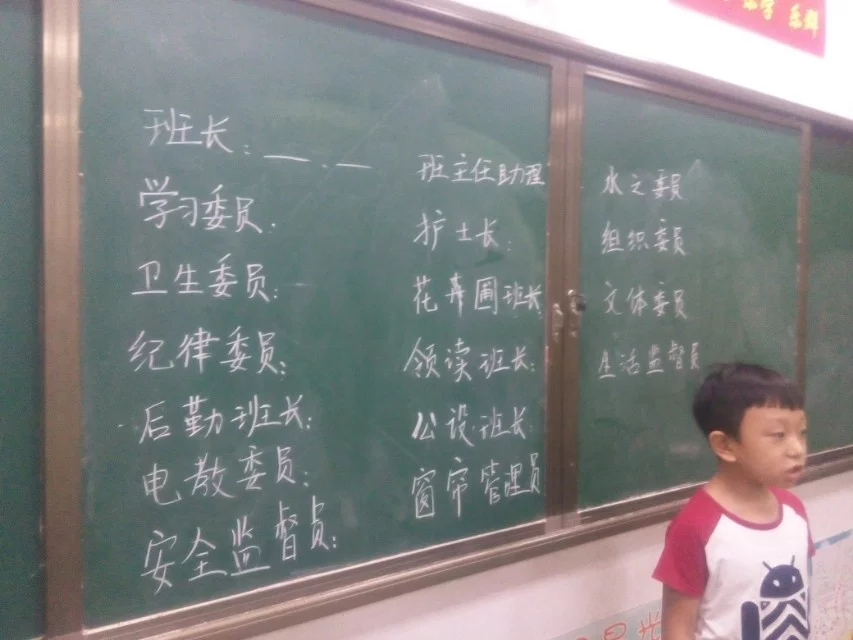 班长: — . —
学习委员.
卫生委员:
纪律委员:
后勤班长:
电教委员:
安全监督员:
班主任助理
护士长:
花卉圃班长
领读班长:
公设班长
窗帘管理员
水之委员
组织委员
文体委员
生活监督员